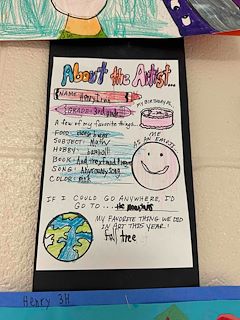 About the Artist...
NAME: Henry
GRADE: 3rd grade
MY BIRTHDAY IS,
A few of my favorite things...
FOOD:
SUBJECT: Math
HOBBY: baseball
BOOK: And
SONG:
COLOR: pink
ME
AS AN EMOJI
IF I COULD GO ANYWHERE, I'D
GO TO... the
MY FAVORITE THING WE DID
IN ART THIS YEAR:
Fall tree
Henry 3H